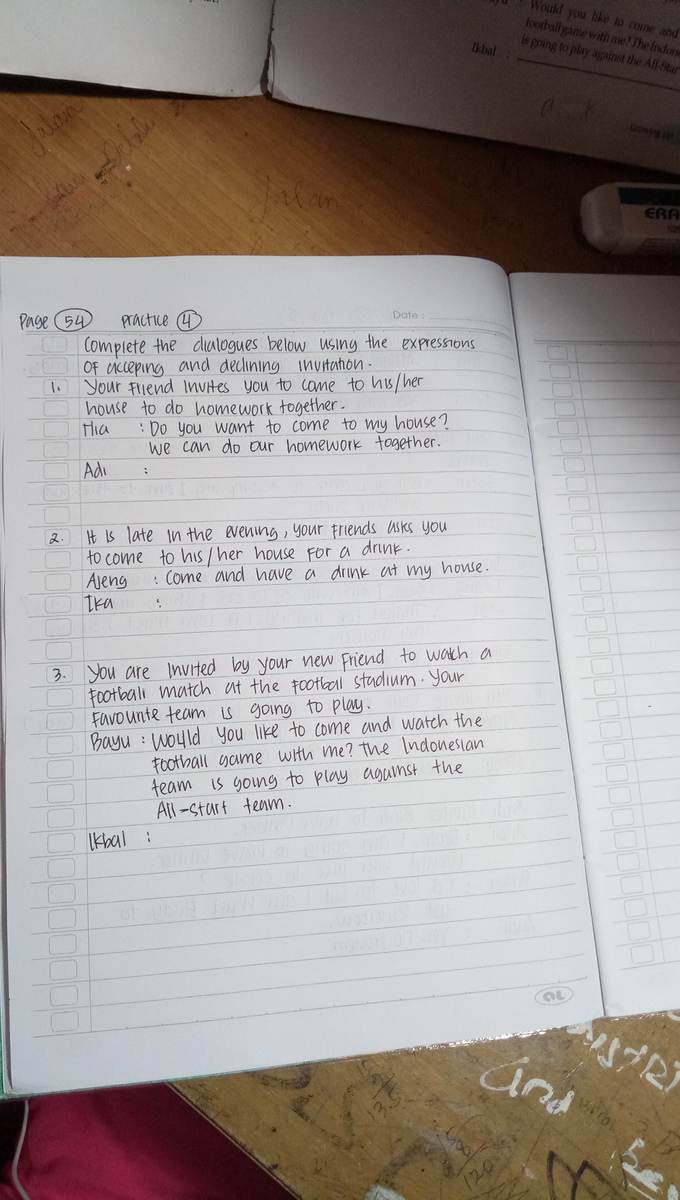 Would you like to come and
football game with me? The Indone
is going to play against the All-Star
Ikbal
Growing Up
Jalan
ERA
Page 54 Practice 4
Date :
Complete the dialogues below using the expressions
of acceping and declining invitation.
1. Your Friend invites you to come to his/her
house to do homework together.
Hia : Do you want to come to my house?
we can do our homework together.
Adi :
2. It is late in the evening, your Friends asks you
to come to his/her house for a drink.
Ajeng : Come and have a drink at my house.
Ika :
3. You are invited by your new Friend to watch a
Football match at the Football stadium. Your
Favourite team is going to play.
Bayu : Would you like to come and watch the
Football game with me? The Indonesian
team is going to play against the
All-start team.
Ikbal :
120